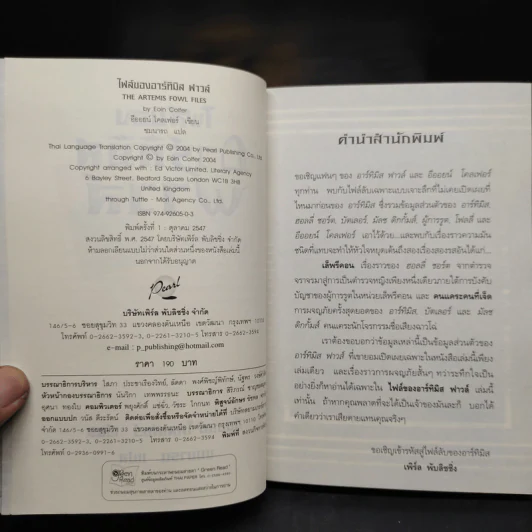 ไฟล์ของอาร์ทิมิส ฟาวล์
THE ARTEMIS FOWL FILES
by Eoin Colfer
อีออยน์ โคลเฟอร์ เขียน
ชมนารถ แปล
Thai Language Translation Copyright © 2004 by Pearl Publishing Co., Ltd.
Copyright © by Eoin Colfer, 2004
Copyright arranged with : Ed Victor Limited, Literary Agency
6 Bayley Street, Bedford Square London WC1B 3HB
United Kingdom
through Tuttle - Mori Agency Co., Ltd.
ISBN 974-92605-0-3
พิมพ์ครั้งที่ 1 : ตุลาคม 2547
สงวนลิขสิทธิ์ พ.ศ. 2547 โดยบริษัทเพิร์ล พับลิชชิ่ง จำกัด
ห้ามลอกเลียนแบบไม่ว่าส่วนใดส่วนหนึ่งของหนังสือเล่มนี้
นอกจากได้รับอนุญาต
Pearl
บริษัทเพิร์ล พับลิชชิ่ง จำกัด
146/5-6 ซอยสุขุมวิท 33 แขวงคลองตันเหนือ เขตวัฒนา กรุงเทพฯ
โทร. 0-2662-3592-3, 0-2261-3210-5 โทรสาร 0-2662-
e-mail : p_publishing@hotmail.com
ราคา 190 บาท
บรรณาธิการบริหาร
หัวหน้ากองบรรณาธิการ
คอมพิวเตอร์
ออกแบบปก
146/5-6 ซอยสุขุมวิท 33 แขวงคลองตันเหนือ เขตวัฒนา กรุงเทพฯ
0-2662-3592-3, 0-2261-3210-5 โทรสาร 0-2662-
โทรศัพท์ 0-2936-0991-6
Green Read
คำนำสำนักพิมพ์
ขอเชิญแฟนๆ ของ อาร์ทิมิส ฟาวล์ และ อีออยน์ โคลเฟอร์
ทุกท่าน พบกับไฟล์ลับเฉพาะแบบเจาะลึกที่ไม่เคยเปิดเผยที่
ไหนมาก่อนของ อาร์ทิมิส ซึ่งรวมข้อมูลส่วนตัวของ อาร์ทิมิส
ฮอลลี่ ชอร์ต, บัตเลอร์, มัลช ดิกกั้มส์, ผู้การรูต, โฟลลี่ และ
อีออยน์ โคลเฟอร์ เอาไว้ด้วย...และพบกับเรื่องราวความมัน
ชนิดที่แทบจะทำให้หัวใจหยุดเต้นถึงสองเรื่องสองรสอันได้แก่...
เล็พรีคอน เรื่องราวของ ฮอลลี่ ชอร์ต จากตำรวจ
จราจรมาสู่การเป็นตำรวจหญิงเพียงหนึ่งเดียวภายใต้การบังคับ
บัญชาของผู้การรูตในหน่วยเล็พรีคอน และ คนแคระคนที่เจ็ด
การผจญภัยครั้งสุดยอดของ อาร์ทิมิส บัตเลอร์ และ มัลช
ดิกกั้มส์ คนแคระนักโจรกรรมชื่อเสียงฉาวโฉ่
เราต้องขอบอกว่าข้อมูลเหล่านี้เป็นข้อมูลส่วนตัวของ
อาร์ทิมิส ฟาวล์ ที่เขายอมเปิดเผยเฉพาะในหนังสือเล่มนี้เพียง
เล่มเดียว และเรื่องราวการผจญภัยสั้นๆ ทว่าระทึกใจเป็น
อย่างยิ่งก็หาอ่านได้เฉพาะใน ไฟล์ของอาร์ทิมิส ฟาวล์ เล่มนี้
เท่านั้น ถ้าหากคุณพลาดที่จะได้เป็นเจ้าของมันละก็ บอกได้
คำเดียวว่าเราเสียดายแทนคุณจริงๆ
ขอเชิญเข้ารหัสสู่ไฟล์ลับของอาร์ทิมิส
เพิร์ล พับลิชชิ่ง